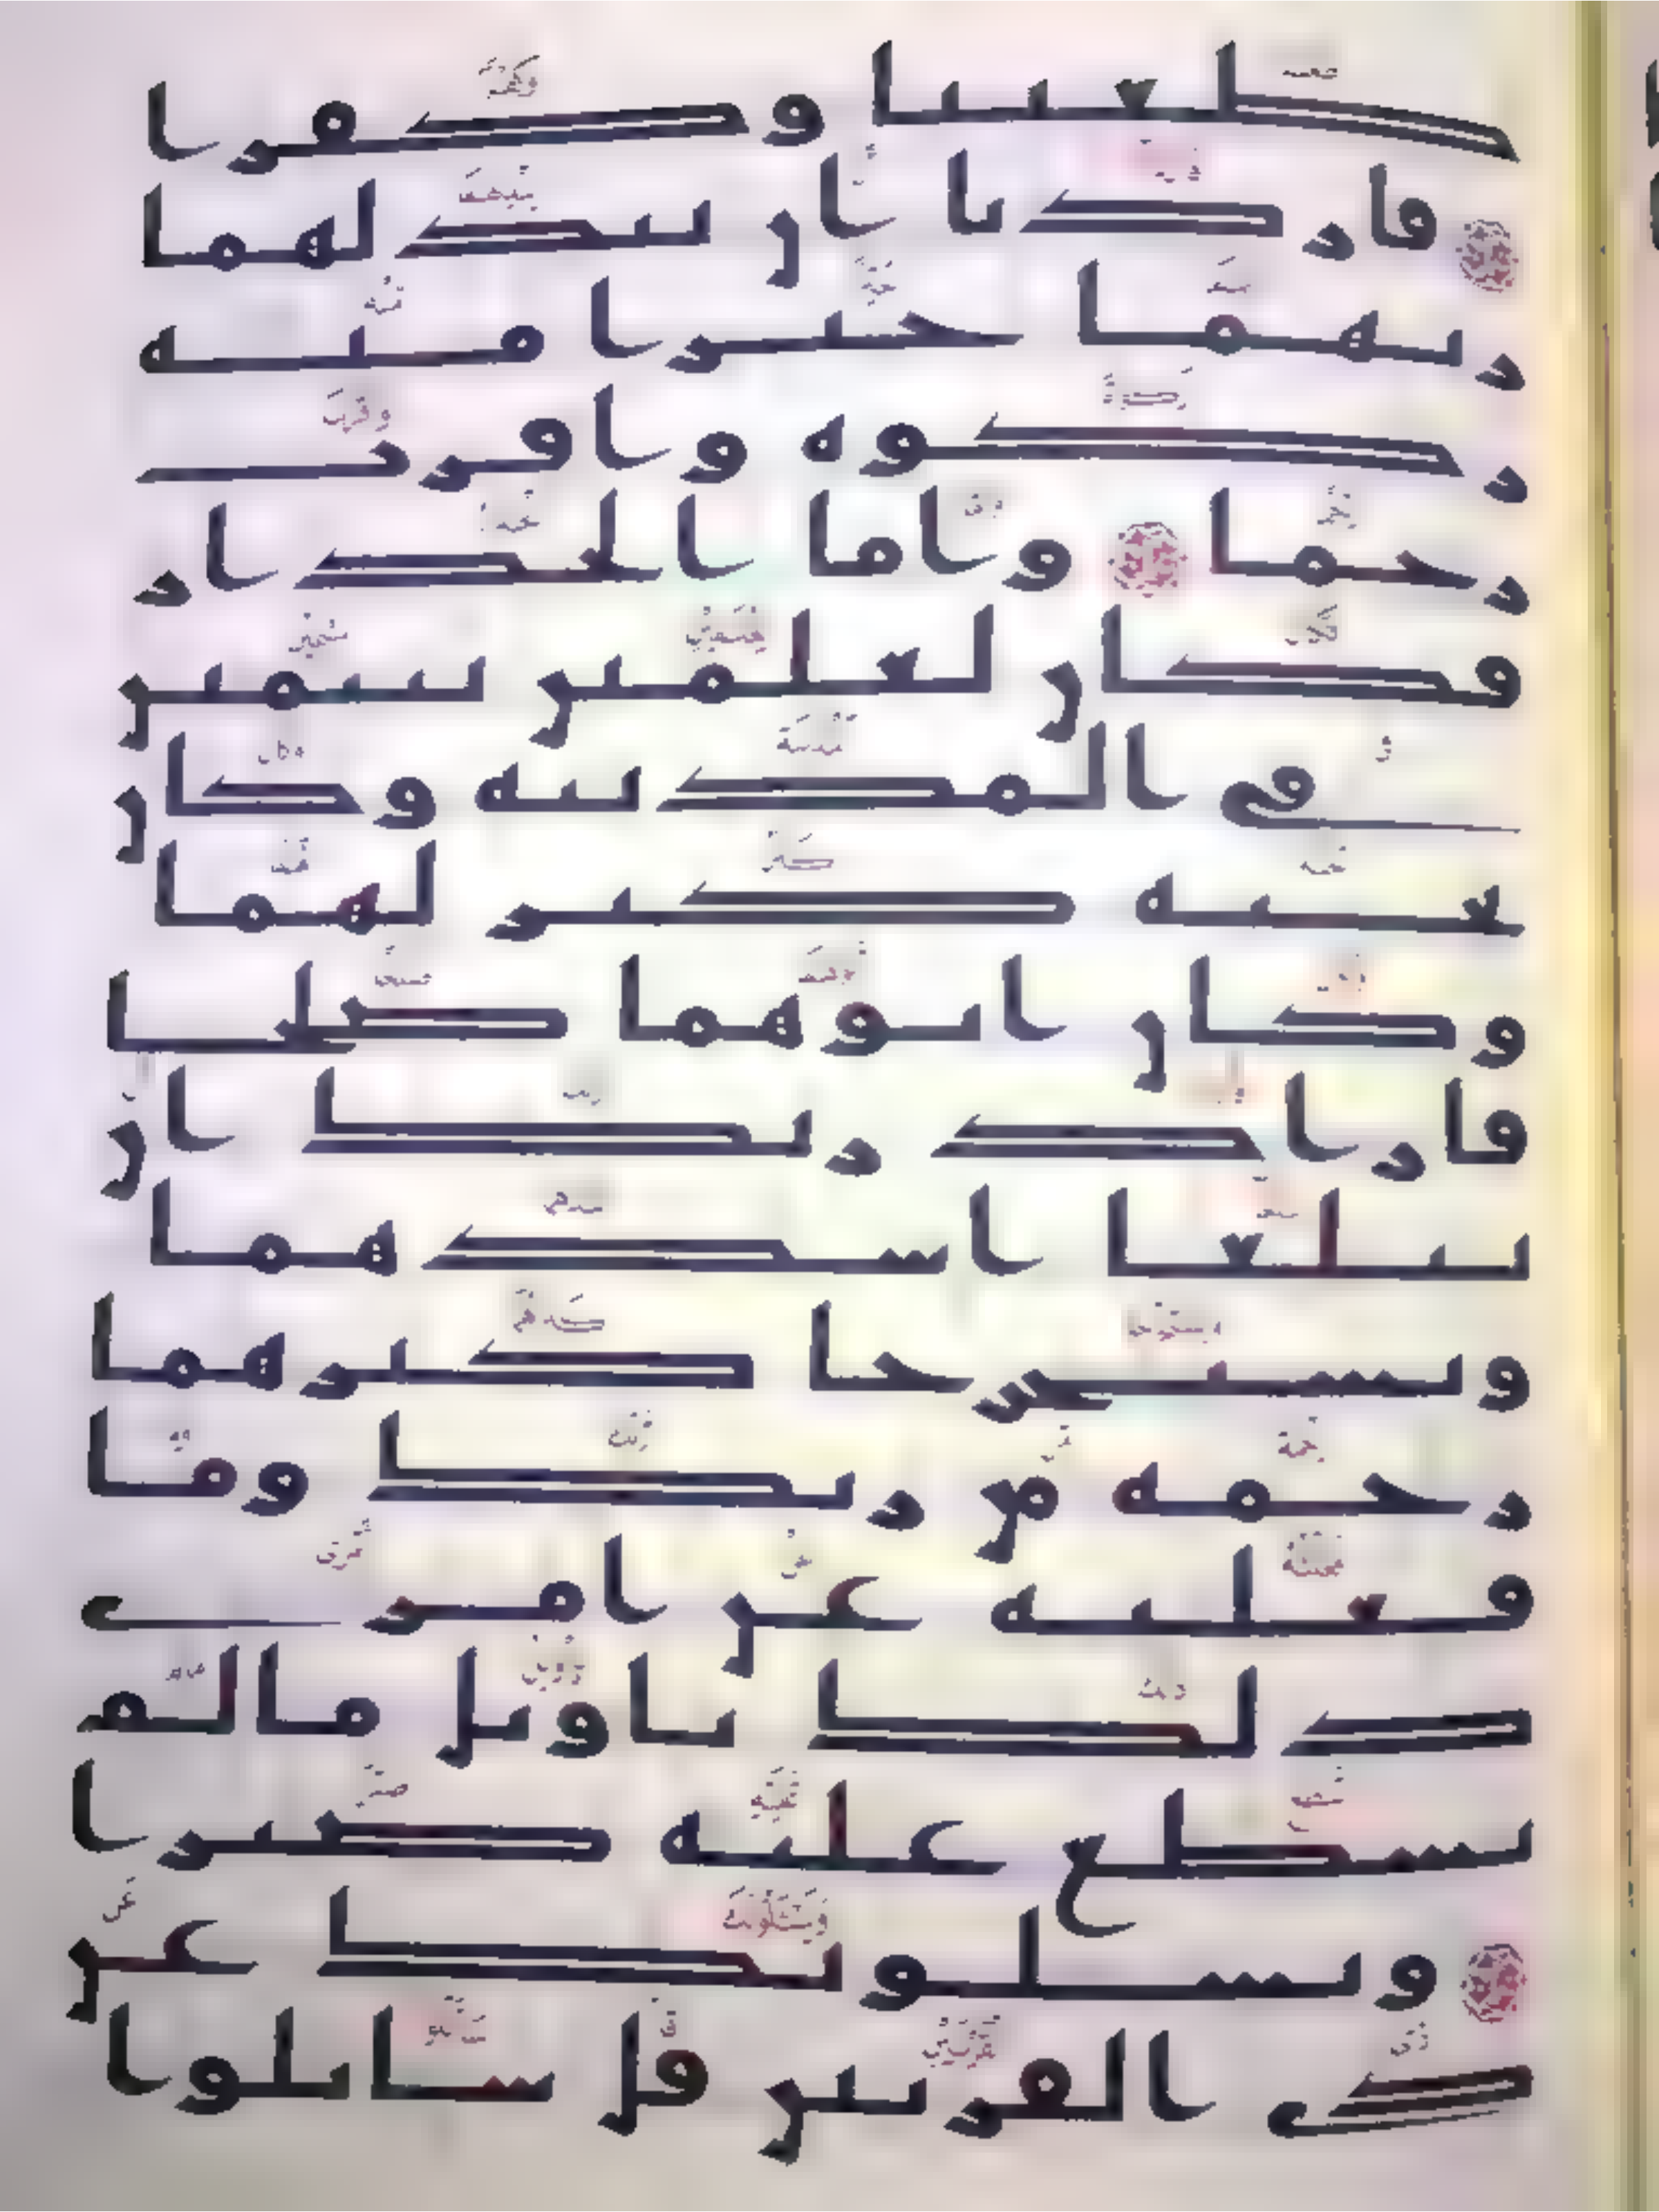 طغينا وكفرا
فاردنا ان يبدلهما
ربهما خيرا منه
زكوه واقرب
رحما واما الجدار
فكان لغلمين يتيمين
في المدينه وكان
تحته كنز لهما
وكان ابوهما صلحا
فاراد ربك ان
يبلغا اشدهما
ويستخرجا كنزهما
رحمه من ربك وما
فعلته عن امري
ذلك تاويل مالم
تسطع عليه صبرا
ويسلونك عن
ذي القرنين قل ساتلوا